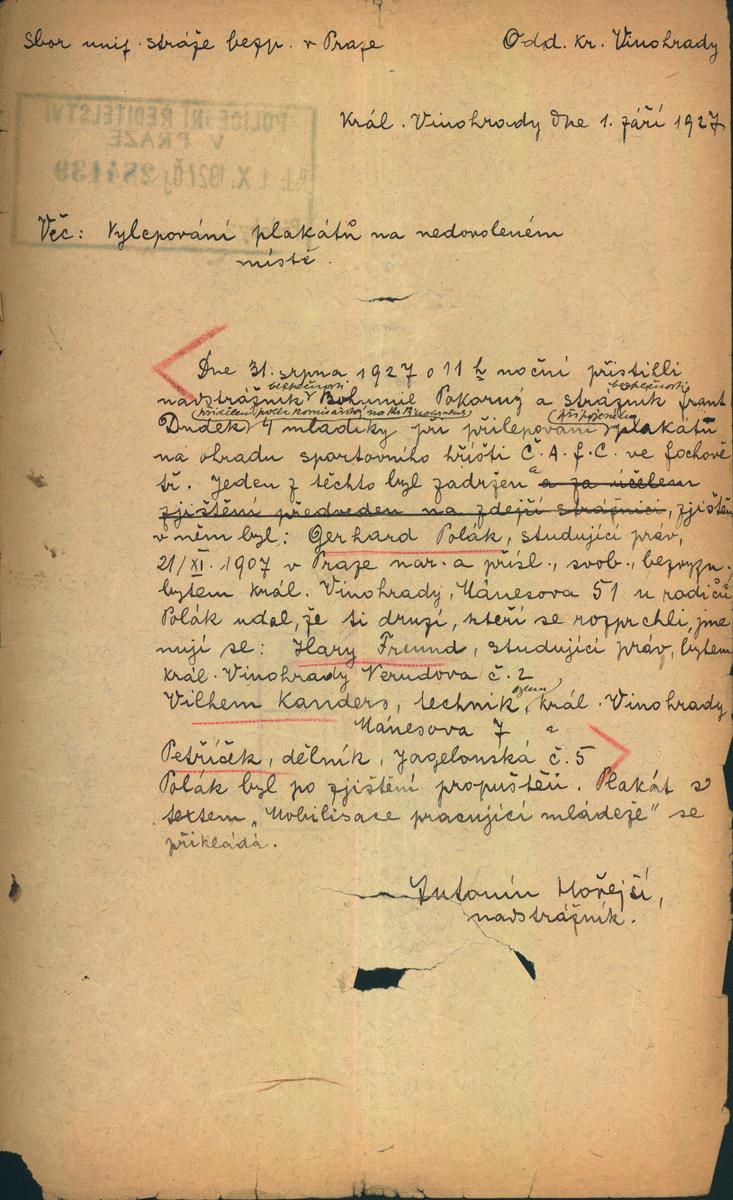 Sbor unif. stráže bezp. v Praze Odd. Kr. Vinohrady
POLICEJNÍ ŘEDITELSTVÍ
V PRAZE
Král. Vinohrady dne 1. září 1927
284139
Věc: Vylepování plakátů na nedovoleném
místě.
Dne 31. srpna 1927 o 11 h noční přistihli
bezpečnosti bezpečnosti
nadstrážník Bohumil Pokorný a strážník Frant
Dudek 4 mladíky při přilepování plakátů
na ohradu sportovního hříšti Č.A.F.C. ve Fochově
tř. Jeden z těchto byl zadržen a za účelem
zjištění předveden na zdejší strážnici, zjištěn
v něm byl: Gerhard Polák, studující práv,
21/XI. 1907 v Praze nar. a přísl., svob., bezvyzn.
bytem král. Vinohrady, Mánesova 51 u rodičů
Polák udal, že ti druzí, kteří se rozprchli, jme
nují se: Hary Freund, studující práv, bytem
král. Vinohrady Nerudova č. 2
Vilhem Kanders, technik, král. Vinohrady
Mánesova 7 a
Petříček, dělník, Jagelonská č. 5
Polák byl po zjištění propuštěn. Plakát s
textem „Mobilisace pracující mládeže" se
přikládá.
Antonín Hořejší,
nadstrážník.